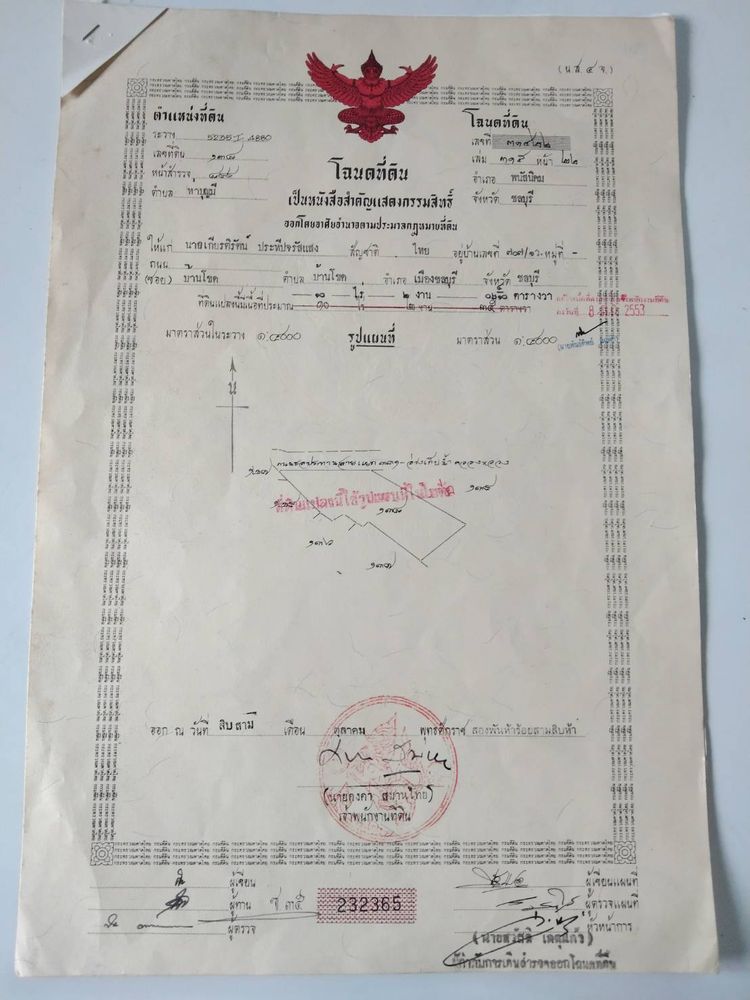 (น.ส. ๔ จ.)
ตำแหน่งที่ดิน
ระวาง 5235 I 4880
เลขที่ดิน ๑๓๘
หน้าสำรวจ
ตำบล หาบุญมี
โฉนดที่ดิน
เลขที่ ๓๑๕๒๒
เล่ม ๓๑๕ หน้า ๒๒
อำเภอ พนัสนิคม
จังหวัด ชลบุรี
โฉนดที่ดิน
เป็นหนังสือสำคัญแสดงกรรมสิทธิ์
ออกโดยอาศัยอำนาจตามประมวลกฎหมายที่ดิน
ให้แก่ นายเกียรติรัตน์ ประทีปจรัสแสง สัญชาติ ไทย อยู่บ้านเลขที่ ๓๗/๑๖ หมู่ที่ -
ถนน
(ซอย) บ้านโขด ตำบล บ้านโขด อำเภอ เมืองชลบุรี จังหวัด ชลบุรี
๑๐ ไร่ ๒ งาน ตารางวา
ที่ดินแปลงนี้มีเนื้อที่ประมาณ ๑๐ ไร่ ๒ งาน ๓๕ ตารางวา
8 2553
มาตราส่วนในระวาง ๑:๔๐๐๐ รูปแผนที่ มาตราส่วน ๑:๔๐๐๐
น
ที่ดินแปลงนี้ใช้รูปแผนที่ในใบต่อ
๑๓๘
๑๓๖
๑๓๗
ออก ณ วันที่ สิบสาม เดือน ตุลาคม พุทธศักราช สองพันห้าร้อยสามสิบห้า
(นายคงคา สมานไทย)
เจ้าพนักงานที่ดิน
ผู้เขียน
ผู้ทาน
ผู้ตรวจ
ช ๓๕
232365
ผู้เขียนแผนที่
ผู้ตรวจแผนที่
หัวหน้าการ
ผู้กำกับการเดินสำรวจออกโฉนดที่ดิน